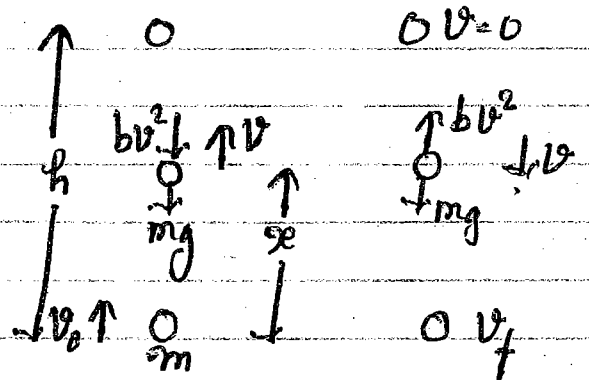 v=0
bv² v bv²
h v
mg x mg
v₀
m v_f